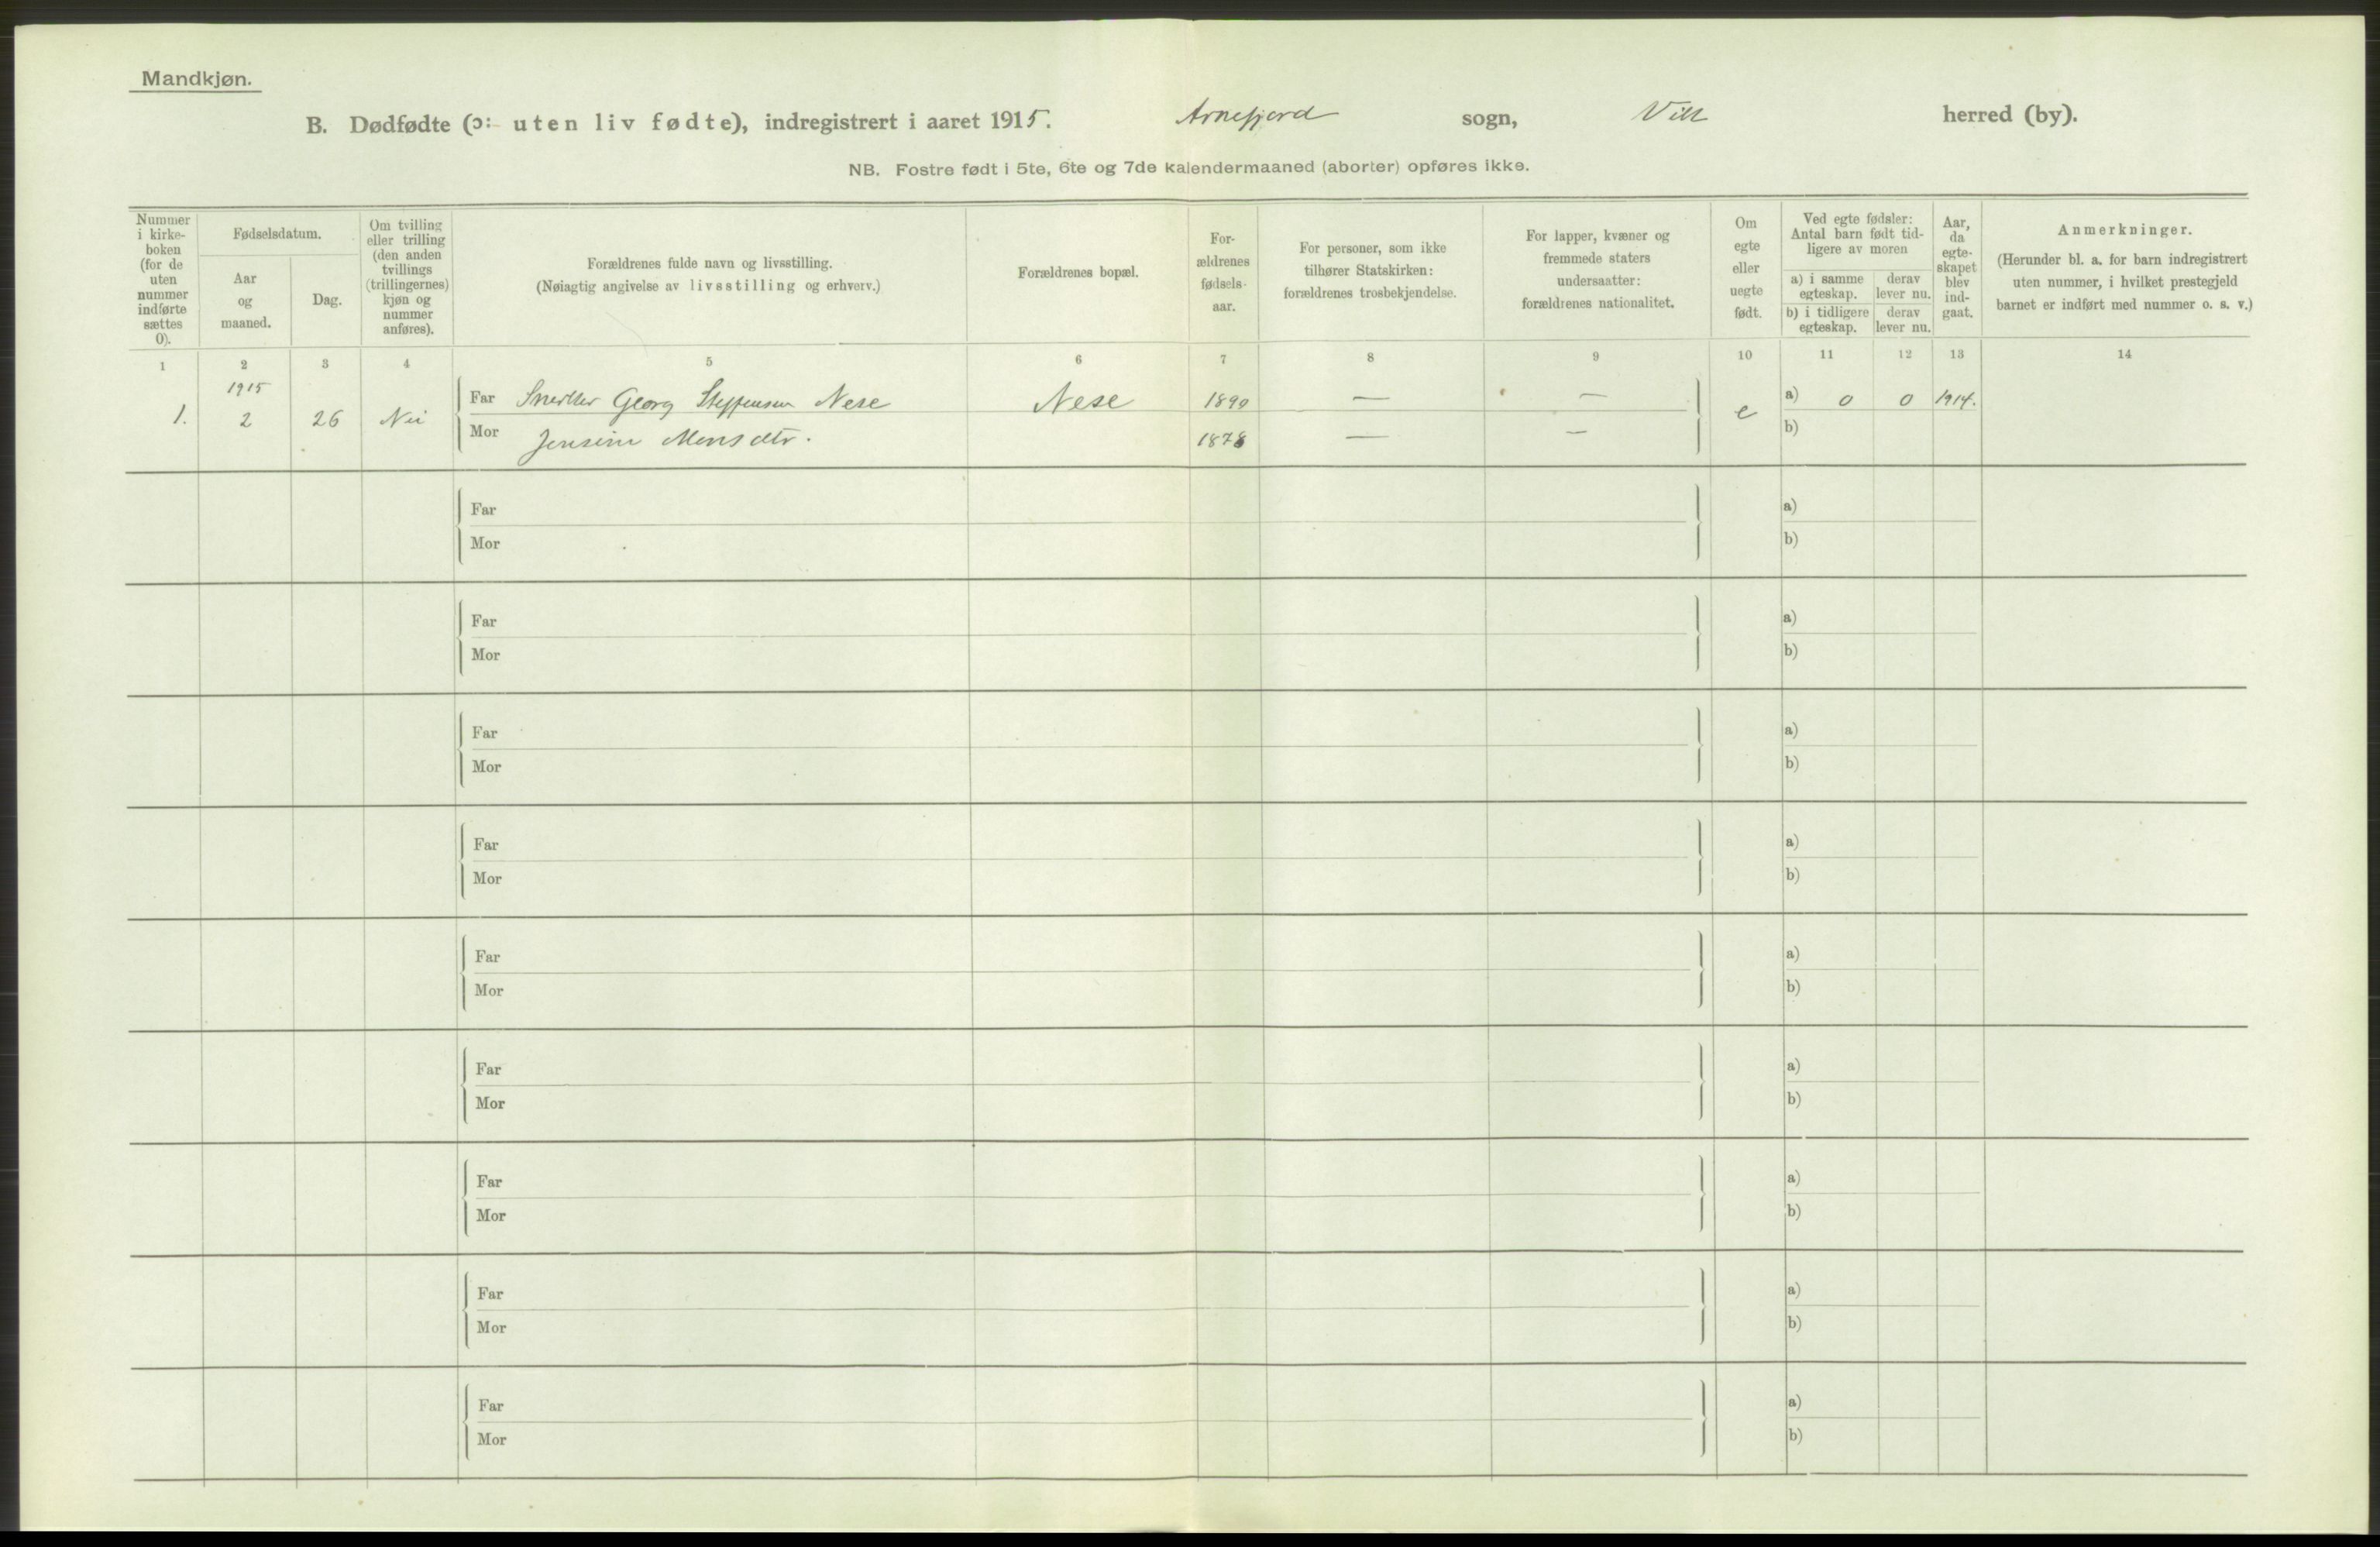 Mandkjøn.
B. Dødfødte (ɔ: uten liv fødte), indregistrert i aaret 1915. Arnefjord sogn, Vik herred (by).
NB. Fostre født i 5te, 6te og 7de kalendermaaned (aborter) opføres ikke.
Nummer i kirke-boken (for de uten nummer indførte sættes 0).
Fødselsdatum.
Aar og maaned.
Dag.
Om tvilling eller trilling (den anden tvillings (trillingernes) kjøn og nummer anføres).
Forældrenes fulde navn og livsstilling.
(Nøiagtig angivelse av livsstilling og erhverv.)
Forældrenes bopæl.
For-ældrenes fødsels-aar.
For personer, som ikke tilhører Statskirken: forældrenes trosbekjendelse.
For lapper, kvæner og fremmede staters undersaatter: forældrenes nationalitet.
Om egte eller uegte født.
Ved egte fødsler: Antal barn født tid-ligere av moren
a) i samme egteskap. derav lever nu.
b) i tidligere egteskap. derav lever nu.
Aar, da egte-skapet blev ind-gaat.
Anmerkninger.
(Herunder bl. a. for barn indregistrert uten nummer, i hvilket prestegjeld barnet er indført med nummer o. s. v.)
1 2 3 4 5 6 7 8 9 10 11 12 13 14
1915
1. 2 26 Nei Far Snedker Georg Steffensen Nese Nese 1890 — — e a) 0 0 1914.
Mor Jensine Monsdtr. 1878 — — b)
Far a)
Mor b)
Far a)
Mor b)
Far a)
Mor b)
Far a)
Mor b)
Far a)
Mor b)
Far a)
Mor b)
Far a)
Mor b)
Far a)
Mor b)
Far a)
Mor b)